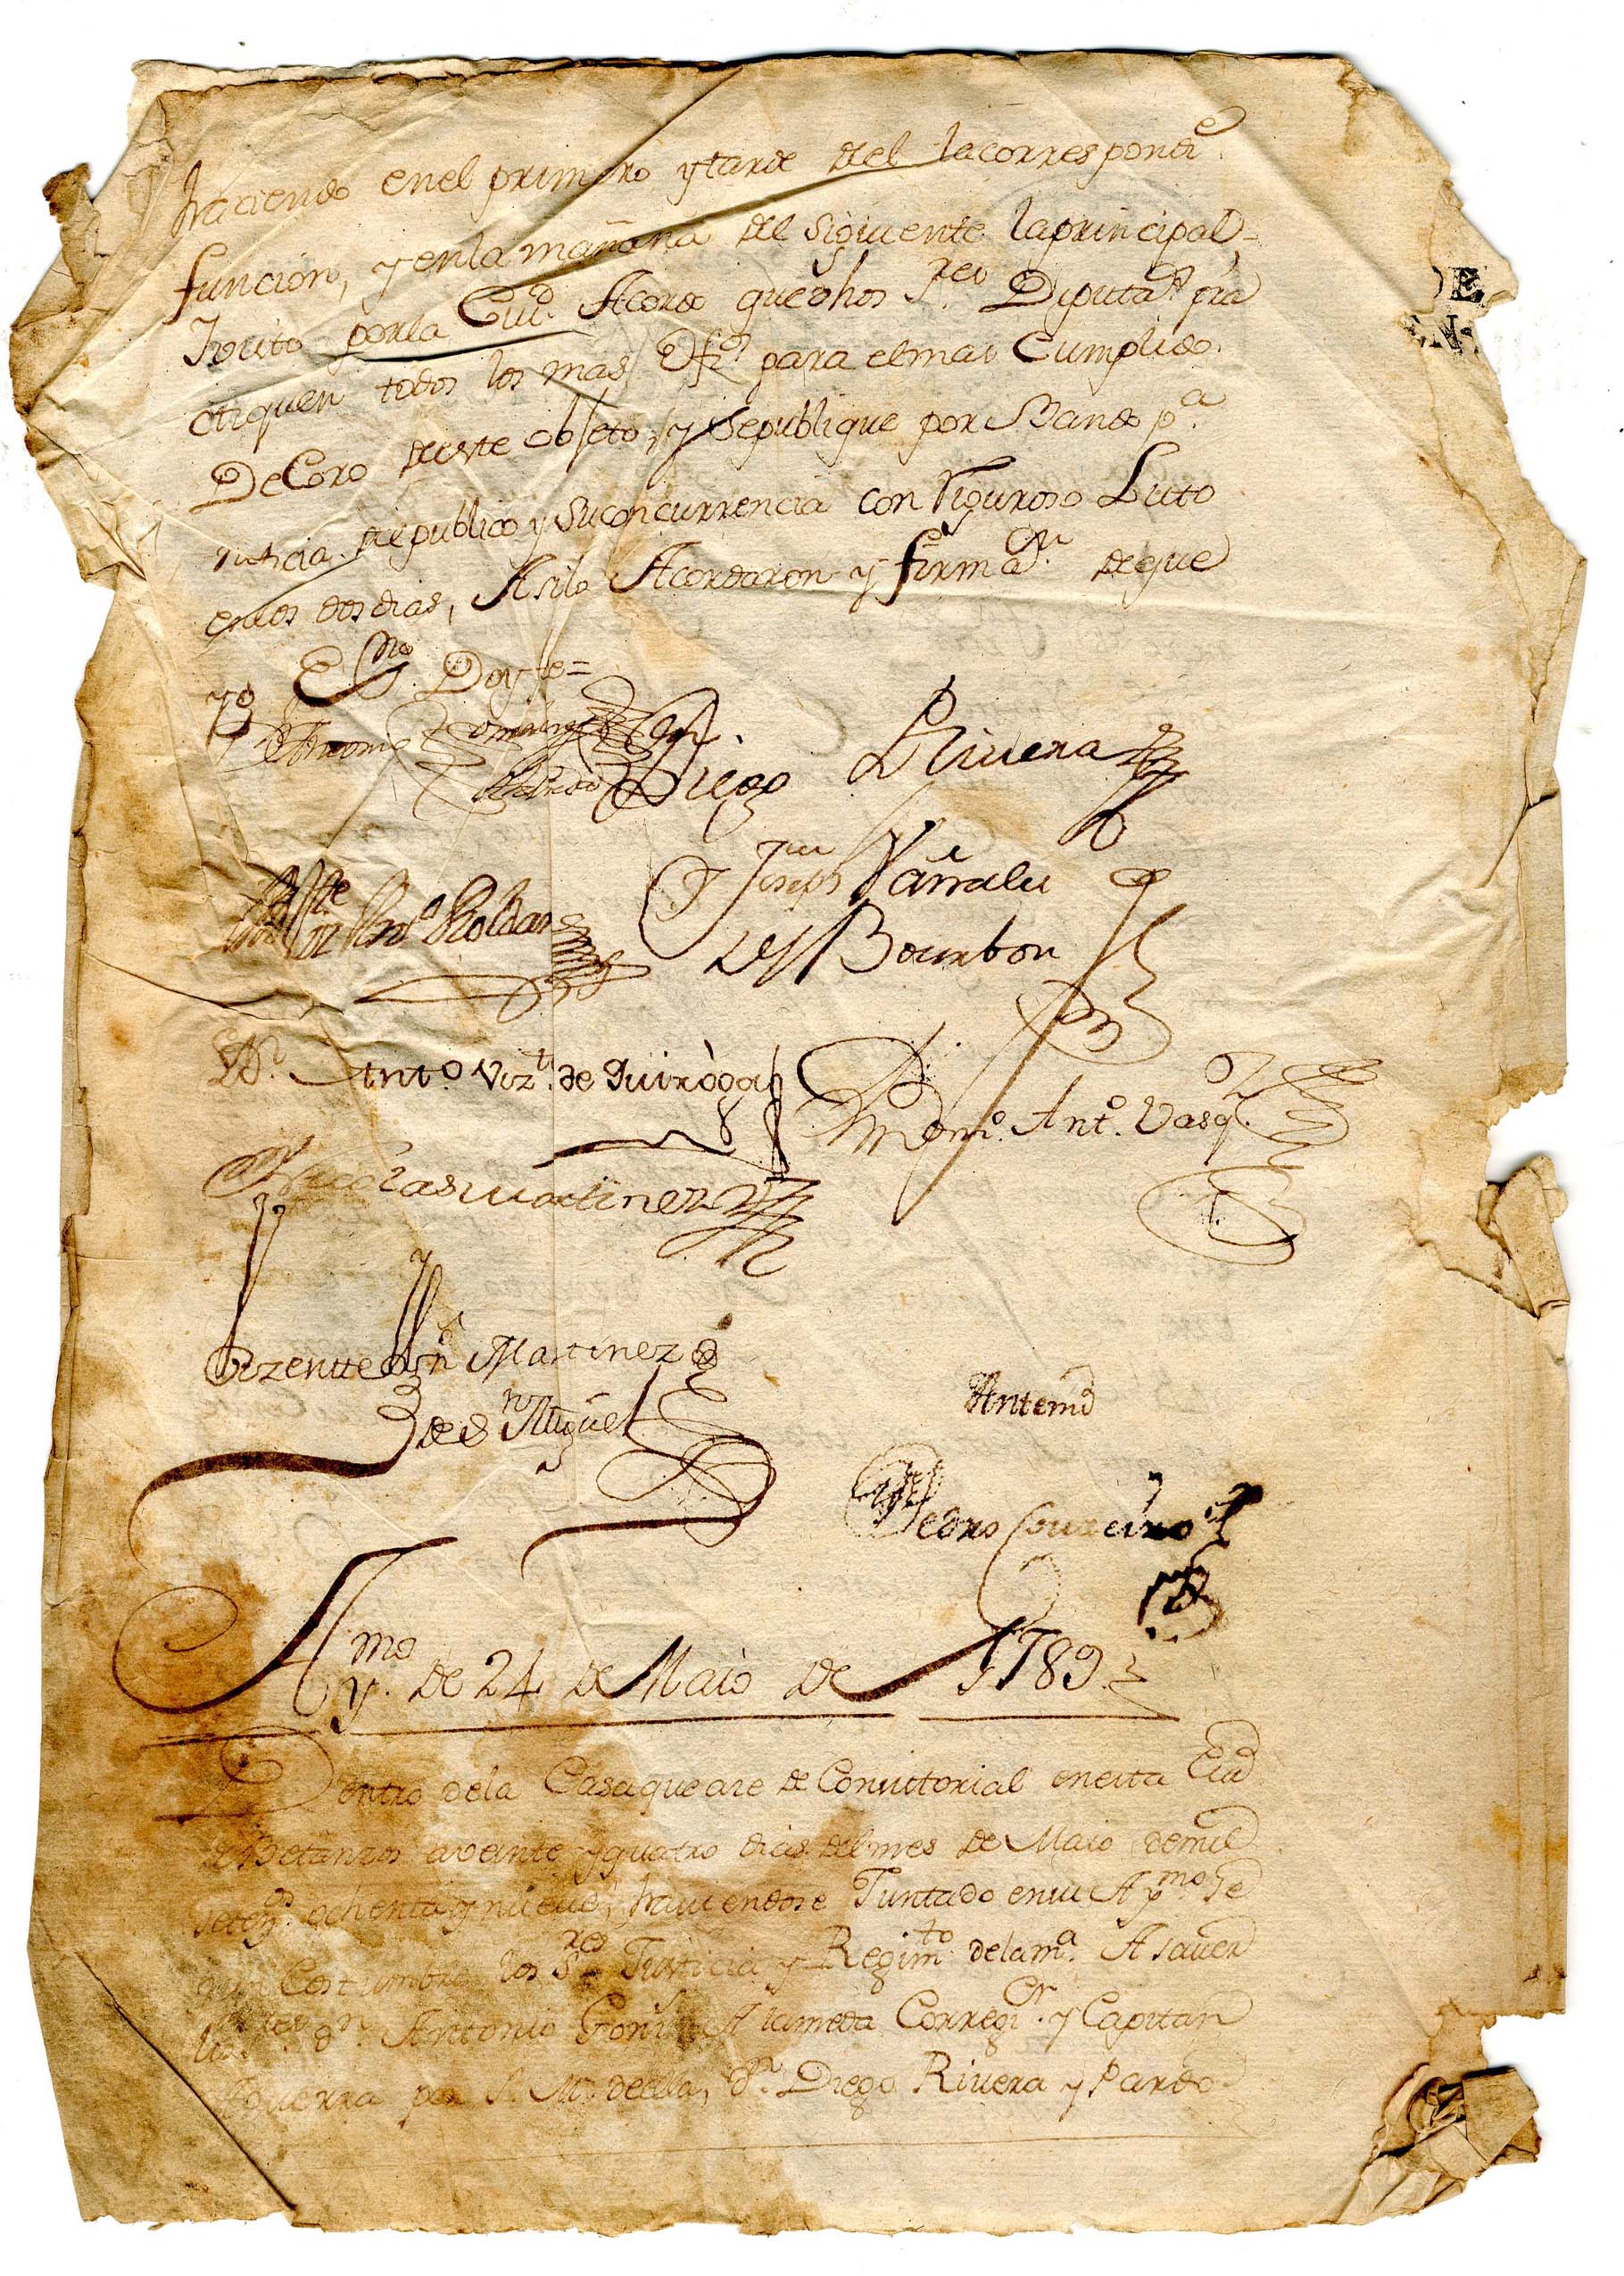 haciendo enel primero ytarde del lacorrespondte.
función, y enla mañana del siguiente laprincipal,
Ivito porla Ciud. Acordo quedhos Sres. Diputados pra
ctiquen todos los mas Ofos. para elmas Cumplido.
DeCoro deeste objeto, y Sepublique por Bando pa.
noticia delpublico y suconcurrencia con Riguroso Luto
enlos dos dias, Asilo Acordaron y firmaon. deque
yo Essno. Doy fe=
Diego Rivera
Roldan
Jph Joseph Vañales
Bourbon
Dn. Anto. Vizte. de Quiròga
Domo. Anto. Vasqz.
Nicolas Martinez
Bizente Martinez
de Sn Miguel
Antemi
Pedro Couzeiro
Aymo. de 24 de Maio de 1789.
Dentro dela Casaque aze de Conssittorial enesta Ciud
de Betanzos aveinte yquatro dias delmes de Maio demil
setezos. ochenta y nueve, haviendose Juntado ensu Aymo. se
gun Costumbre los Sres Justicia y Regimto. delama. Asaver
los Sres. dn. Antonio Gonz Alameda Corregior. y Capitan
Aguerra por S. M. deella, dn. Diego Rivera y Pardo
DE
N.